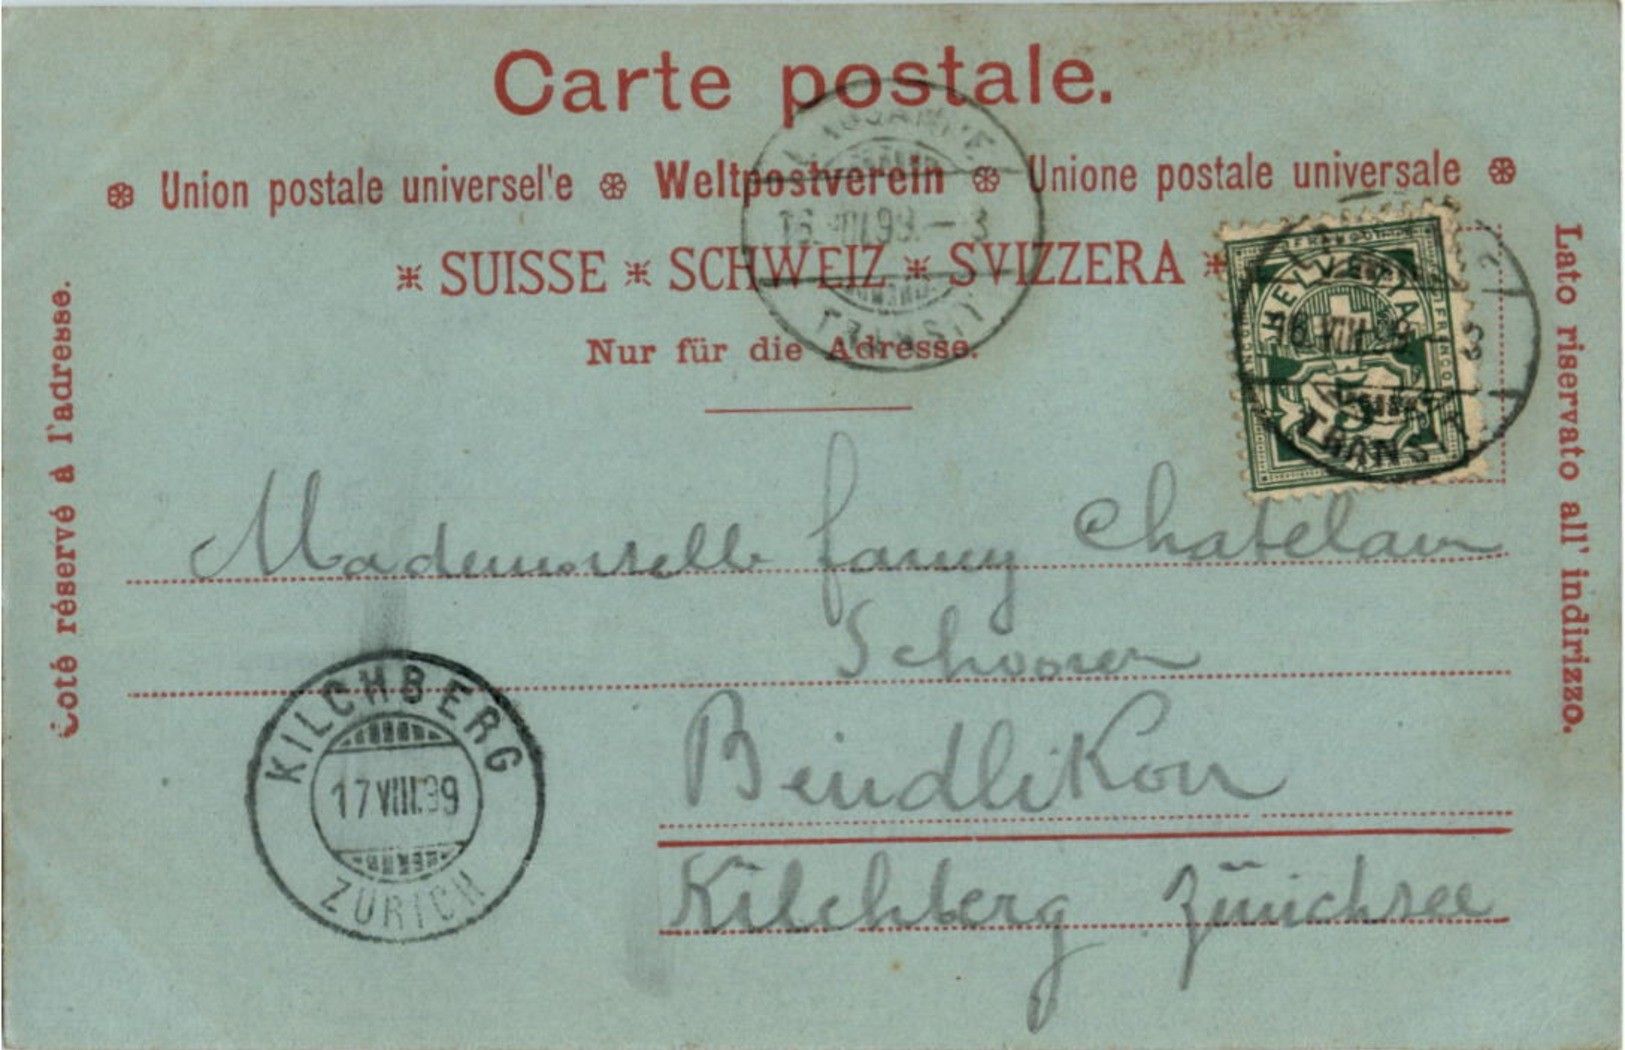 Carte postale.
Union postale universel'e Weltpostverein Unione postale universale
SUISSE SCHWEIZ SVIZZERA
Nur für die Adresse.
Coté réservé à l'adresse.
Lato riservato all' indirizzo.
LAUSANNE.
16. VIII.99.-3
TRANSIT
FRANCO
HELVETIA
FRANCO
5
16.VIII.99
TRANSIT
Mademoiselle fanny Chatelain
Schooren
Bendlikon
Kilchberg Zürichsee
KILCHBERG
17 VIII.99
ZÜRICH